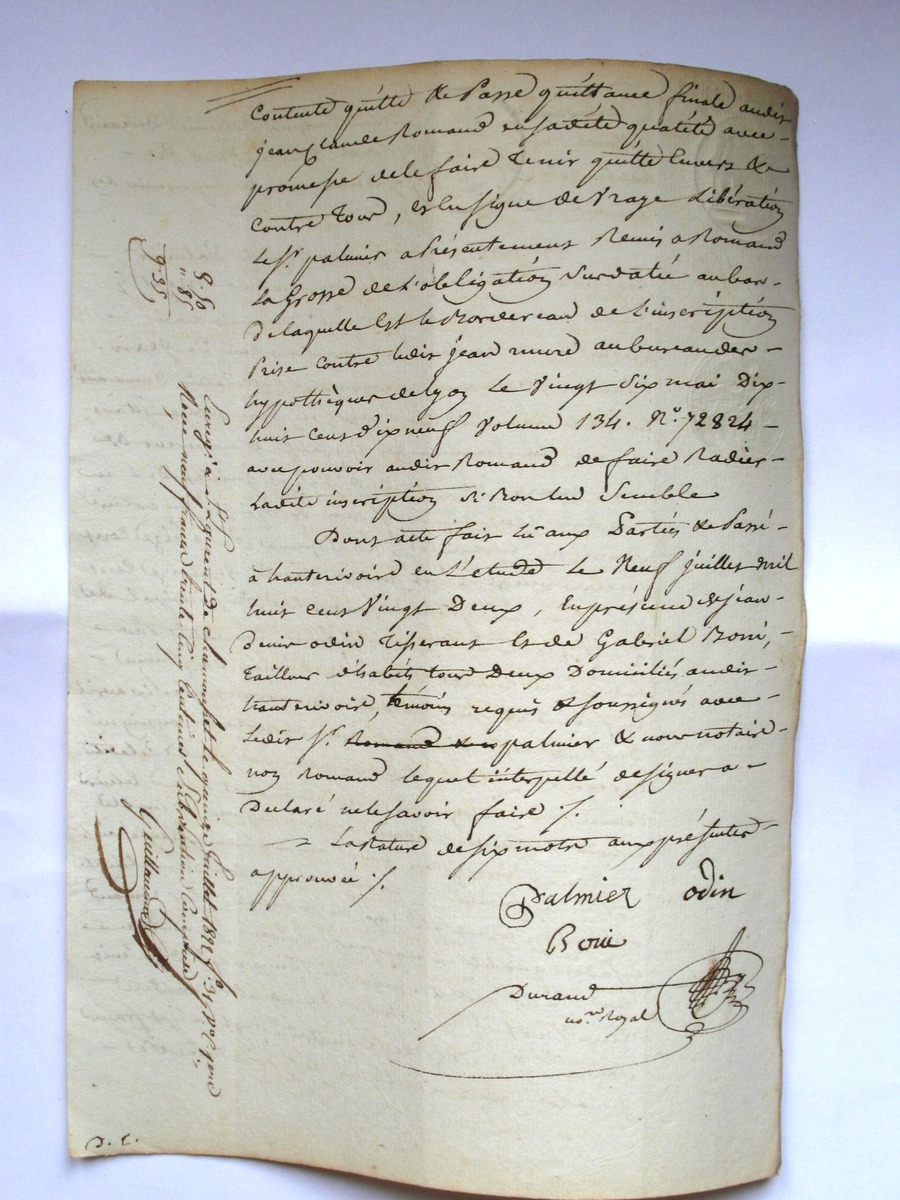 Contente quitte & Passe quittance finale audit
jean Claude Romand en sadite qualité avec
promesse de le faire tenir quitte Envers &
Contre tous, et En Signe de Vraye Libération
Le Sr. palmier a Présentement Remis a Romand
La Grosse de L'obligation Surdatée au bas
De laquelle Est le Bordereau de L'inscription
Prise Contre ledit jean mure au bureau des
hypothèques de Lyon Le Vingt Six mai Dix
huit Cent Dix neuf Volume 134. No. 72824
avec pouvoir audit Romand de faire Radier
Ladite inscription Si Bon lui Semble
Dont acte fait Lû aux Parties & Passé
à hauterivoire en L'etude Le Neuf juillet mil
huit Cent Vingt Deux, En présence de jean
Denis odin Tisserant Et de Gabriel Boni,
Tailleur d'habits tous Deux Domiciliés audit
hauterivoire, témoins requis & soussignés avec
Ledit Sr. Romand palmier & nous notaire
non Romand lequel interpellé de signer a
Déclaré ne le Savoir faire ./.
La rature de six mots aux présentes
approuvée ./.
Palmier odin
Boni
Durand
no.re Royal
8.50
" 85
9.35
Enregé. à St. Laurent de chamousset le quinze juillet 1822 fo. 31 Vo. C. 1ere
Reçu neuf francs trente Cinq Centimes Subvention Comprise
Guillaud
D. C.